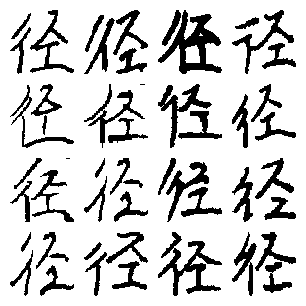 径径径径
径径径径
径径径径
径径径径